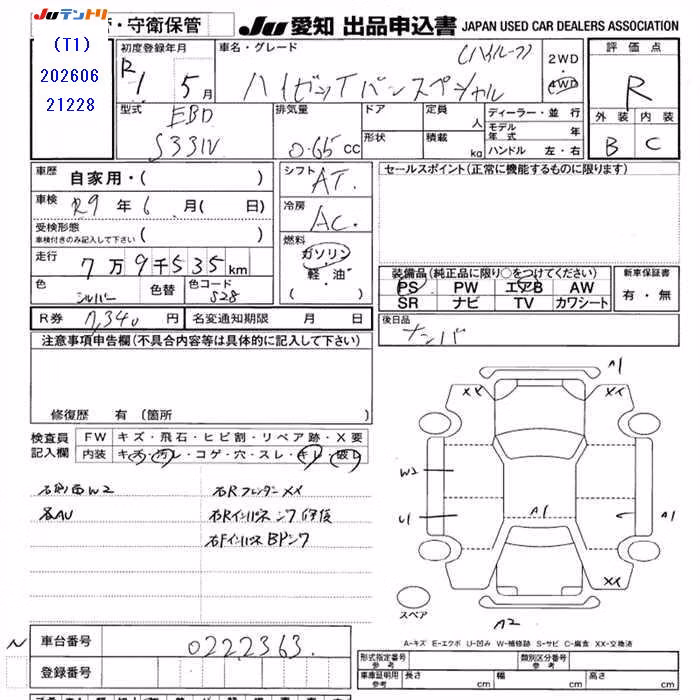 JUテントリ ・守衛保管 JU 愛知 出品申込書 JAPAN USED CAR DEALERS ASSOCIATION
(T1)
202606
21228
初度登録年月 R1 5月
車名・グレード (ハイルーフ)
ハイゼットTバンスペシャル
2WD
4WD
評価点
R
外装 内装
B C
型式 EBD
S331V
排気量 0.65 cc
ドア
形状
定員 人
積載 kg
ディーラー・並行
モデル年式 年
ハンドル 左・右
車歴 自家用・( )
車検 R9年6月( 日)
受検形態
車検付きのみ記入して下さい ( )
走行 7万9千535km
色 シルバー 色替 色コード S28
シフト AT.
冷房 AC.
燃料
ガソリン
軽・油
( )
セールスポイント(正常に機能するものに限ります)
装備品(純正品に限り○をつけてください)
PS PW エアB AW
SR ナビ TV カワシート
新車保証書
有・無
R券 7,340円 名変通知期限 月 日
後日品
ナンバ
注意事項申告欄(不具合内容等は具体的に記入して下さい)
修復歴 有(箇所 )
検査員
記入欄
FW キズ・飛石・ヒビ割・リペア跡・X要
内装 キズ・汚レ・コゲ・穴・スレ・キレ・破レ
各AU
右Rフェンダー XX
右Rインパネ ニク修復
右Fインパネ BPニク
A1
XX XX
W2
U1 A1 A1
XX
スペア A2
A-キズ E-エクボ U-凹み W-補修跡 S-サビ C-腐食 XX-交換済
N 車台番号 0222363
登録番号
形式指定番号
参考
類別区分番号
参考
車庫証明用
参考
長さ cm 幅 cm 高さ cm